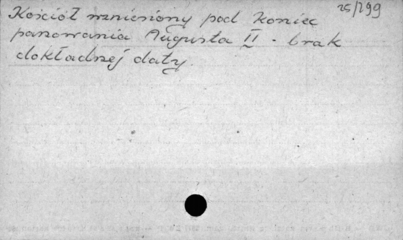 25/799
Kościół wzniesiony pod koniec
panowania Augusta II - brak
dokładnej daty.